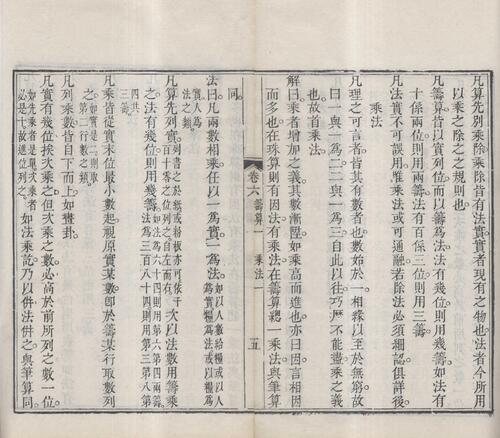 凡算先別乘除乘除皆有法實實者現有之物也法者今所用
以乘之除之之規則也
凡籌算皆以實列位而以籌為法法有幾位則用幾籌如法有
十係兩位則用兩籌法有百係三位則用三籌
凡法實不可誤用惟乘法或可通融若除法必須細認俱詳後
乘法
凡理之可言者皆其有數者也數始於一相緣以至於無窮故
曰一與一為二二與一為三自此以往巧歷不能盡乘之義
也故首乘法
解曰乘者增加之義其數漸陞如乘高而進也亦曰因言相因
而多也在珠算則有因法有乘法在籌算總一乘法與筆算
卷六 籌算一 乘法一 五
同
法曰凡兩數相乘任以一為實一為法如以人數給糧或以人為實糧為法或以糧為實人為法之類
凡算先列實列書之於紙或粉板亦可依千百十零之位列之自上而下次以法數用籌乘
之法有幾位則用幾籌如法為八十四則用第八第四兩籌法為三百八十四則用第三第八第四共三籌
凡乘皆從實末位最小數起視原實某數即於籌某行取數列
之如實是二則取第二行數之類
凡列乘數皆自下而上如畫卦
凡實有幾位挨次乘之但次乘之數必高於前所列之數一位
如先乘者是單次乘者必是十故進位列之如法乘訖乃以併法併之與筆算同